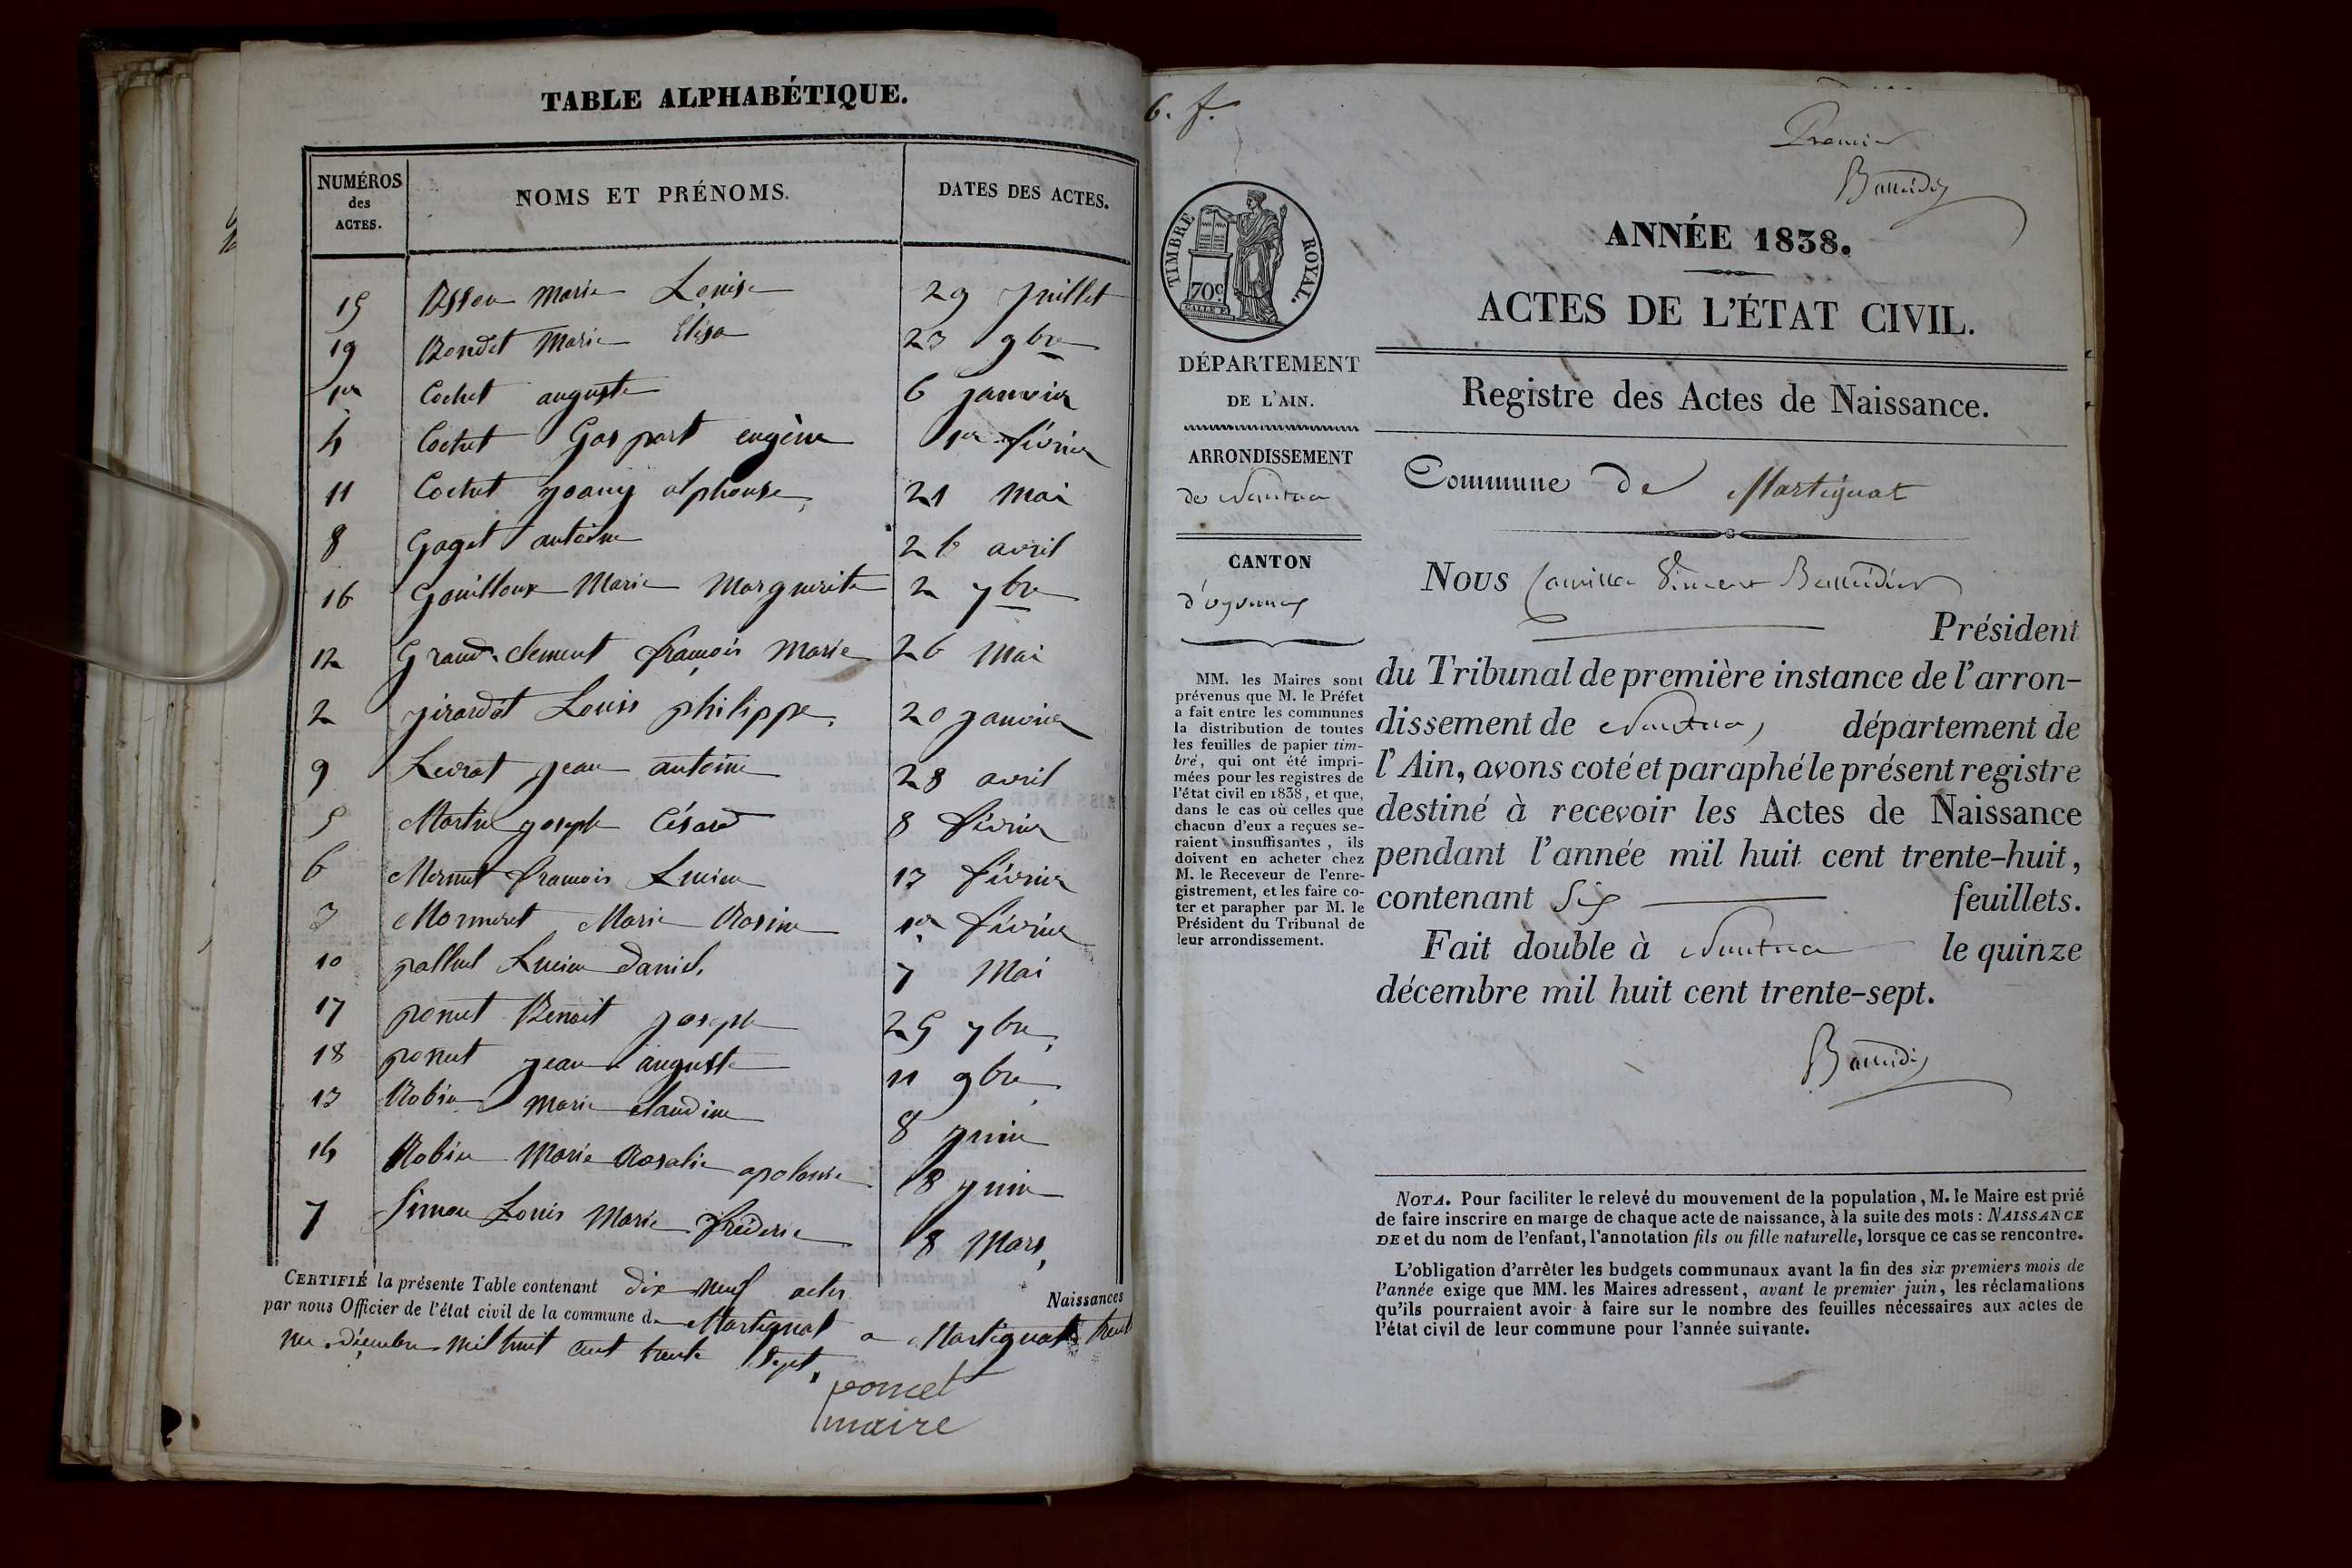 TABLE ALPHABÉTIQUE.
NUMÉROS des ACTES. NOMS ET PRÉNOMS. DATES DES ACTES.
15 Marie Louise 29 Juillet
19 Bondet Marie Elisa 23 9bre
1er Cochet auguste 6 janvier
4 Cochet Gaspart eugène 1er février
11 Cochet joany alphonse 21 Mai
8 Gaget antoine 26 avril
16 Gouilloux Marie Marguerite 2 7bre
12 Grand-clement françois Marie 26 Mai
2 girardot Louis philippe 20 janvier
9 Levrat jean antoine 28 avril
5 Martin joseph Césard 8 février
6 Mermet françois Lucien 13 février
3 Monneret Marie Rosine 1er février
10 Lucien Daniel 7 Mai
17 poncet Benoit joseph 25 7bre
18 poncet jean auguste 11 9bre
13 Robin Marie claudine 8 juin
14 Robin Marie Rosalie apolonie 8 juin
7 Simon Louis Marie fréderic 8 Mars
CERTIFIÉ la présente Table contenant dix neuf actes Naissances
par nous Officier de l'état civil de la commune d. Martignat a Martignat trente
un décembre mil huit cent trente sept.
poncet
maire
6. f.
Premier
TIMBRE ROYAL.
70c
ANNÉE 1838.
ACTES DE L'ÉTAT CIVIL.
Registre des Actes de Naissance.
Commune de Martignat
DÉPARTEMENT
DE L'AIN.
ARRONDISSEMENT
de Nantua
CANTON
d'oyonnax
MM. les Maires sont
prévenus que M. le Préfet
a fait entre les communes
la distribution de toutes
les feuilles de papier tim-
bré, qui ont été impri-
mées pour les registres de
l'état civil en 1838, et que,
dans le cas où celles que
chacun d'eux a reçues se-
raient insuffisantes, ils
doivent en acheter chez
M. le Receveur de l'enre-
gistrement, et les faire co-
ter et parapher par M. le
Président du Tribunal de
leur arrondissement.
Nous Camille Vincent
Président
du Tribunal de première instance de l'arron-
dissement de Nantua, département de
l'Ain, avons coté et paraphé le présent registre
destiné à recevoir les Actes de Naissance
pendant l'année mil huit cent trente-huit,
contenant Six feuillets.
Fait double à Nantua le quinze
décembre mil huit cent trente-sept.
NOTA. Pour faciliter le relevé du mouvement de la population, M. le Maire est prié
de faire inscrire en marge de chaque acte de naissance, à la suite des mots : NAISSANCE
DE et du nom de l'enfant, l'annotation fils ou fille naturelle, lorsque ce cas se rencontre.
L'obligation d'arrêter les budgets communaux avant la fin des six premiers mois de
l'année exige que MM. les Maires adressent, avant le premier juin, les réclamations
qu'ils pourraient avoir à faire sur le nombre des feuilles nécessaires aux actes de
l'état civil de leur commune pour l'année suivante.